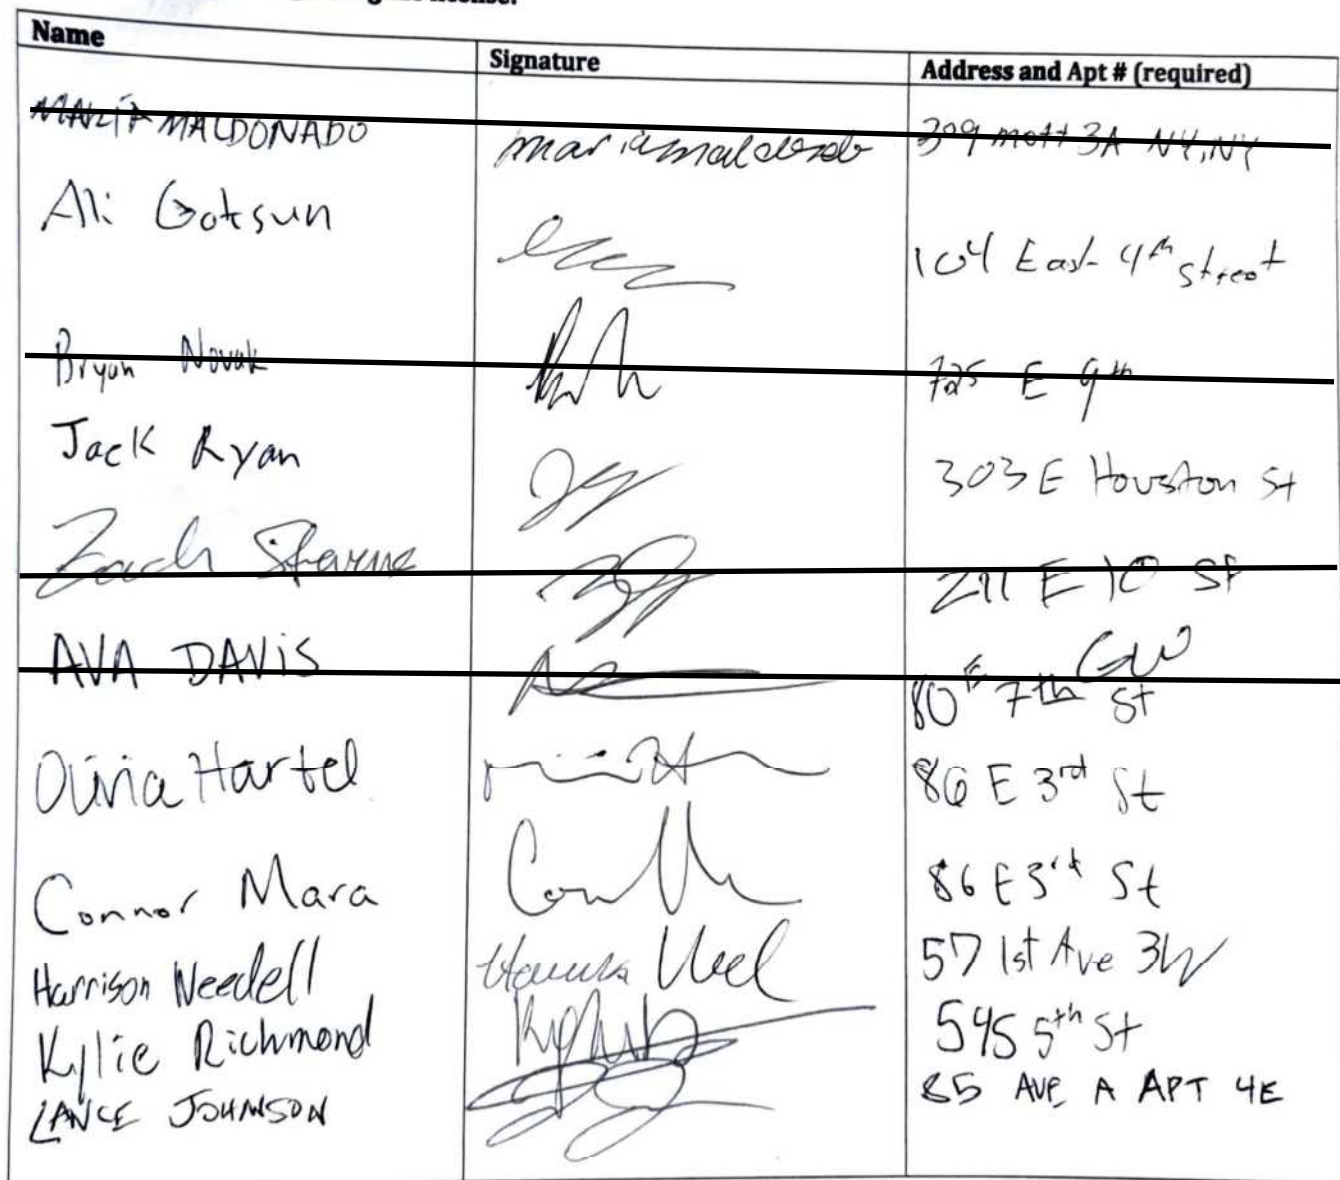 license.
Name Signature Address and Apt # (required)
MARIA MALDONADO maria maldonado 399 mott 3A NY, NY
Ali Gotsun 104 East 4th Street
Bryan Novak 725 E 9th
Jack Ryan 303 E Houston St
Zach 211 E 10 St
AVA DAVIS 80 E 7th St GW
Olivia Hartel 86 E 3rd St
Connor Mara 86 E 3rd St
Harrison Needell 57 1st Ave 3W
Kylie Richmond 545 5th St
LANCE JOHNSON 85 AVE A APT 4E